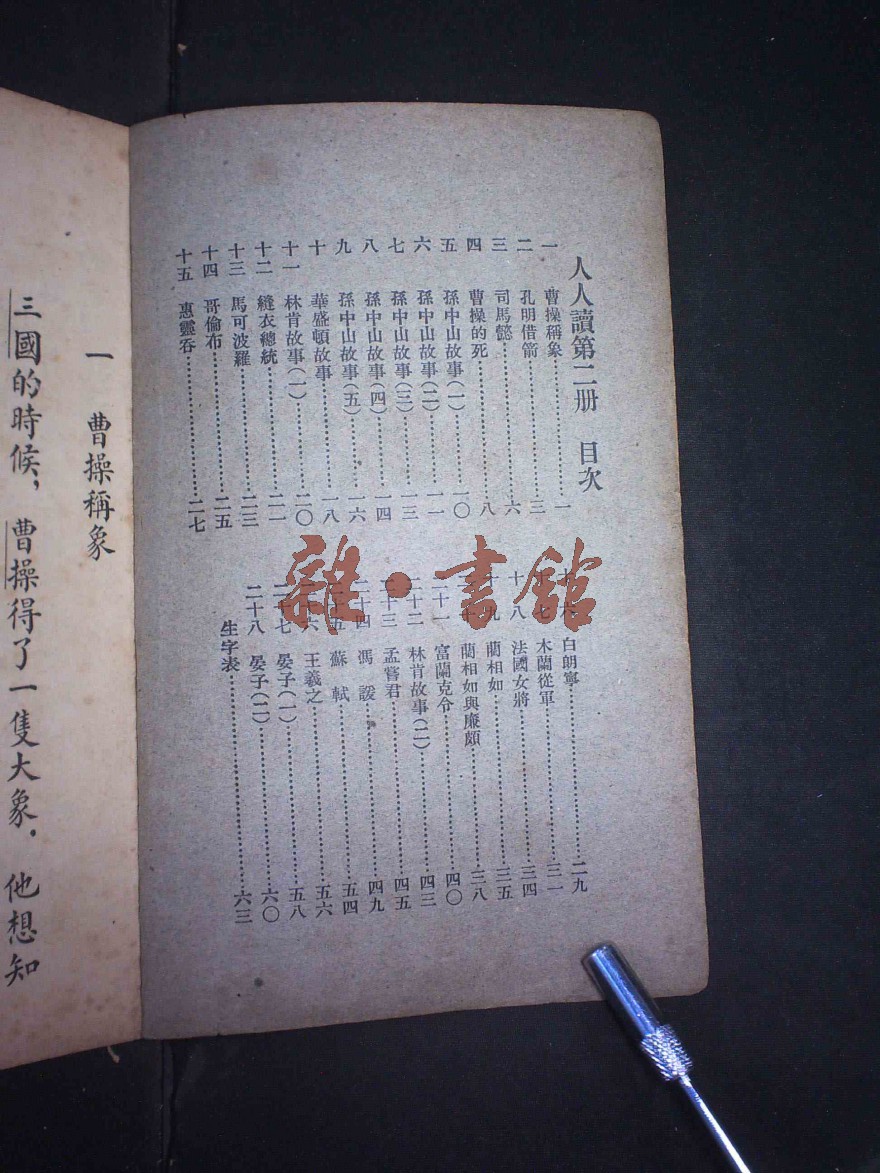 人人讀第二册　目次
一　曹操稱象………一
二　孔明借箭………三
三　司馬懿………六
四　曹操的死………八
五　孫中山故事（一）………一〇
六　孫中山故事（二）………一一
七　孫中山故事（三）………一三
八　孫中山故事（四）………一四
九　孫中山故事（五）………一六
十　華盛頓故事………一八
十一　林肯故事（一）………二〇
十二　縫衣總統………二一
十三　馬可波羅………二三
十四　哥倫布………二五
十五　惠靈吞………二七
十六　白朗寧………二九
十七　木蘭從軍………三一
十八　法國女將………三四
十九　藺相如………三五
二十　藺相如與廉頗………三八
二十一　富蘭克令………四〇
二十二　林肯故事（二）………四三
二十三　孟嘗君………四五
二十四　馮諼………四九
二十五　蘇軾………五四
二十六　王羲之………五六
二十七　晏子（一）………五八
二十八　晏子（二）………六〇
生字表………六三
雜·書館
一　曹操稱象
三國的時候，曹操得了一隻大象．他想知